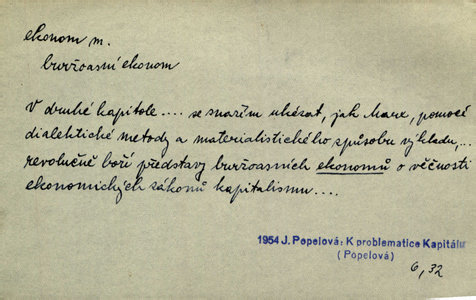 ekonom m.
buržoasní ekonom
V druhé kapitole .... se snažím ukázat, jak Marx, pomocí
dialektické metody a materialistického způsobu výkladu,...
revolučně boří představy buržoasních ekonomů o věčnosti
ekonomických zákonů kapitalismu....
1954 J. Popelová: K problematice Kapitálu
(Popelová)
6, 32